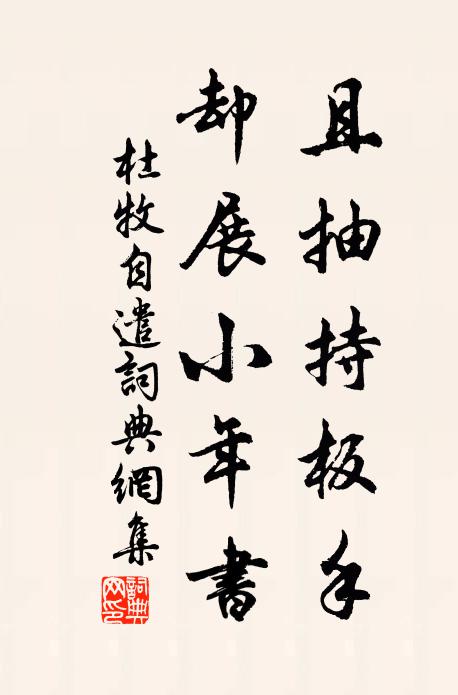 且抽持板手
却展小年書
杜牧自遣詞典網集
詞典網印